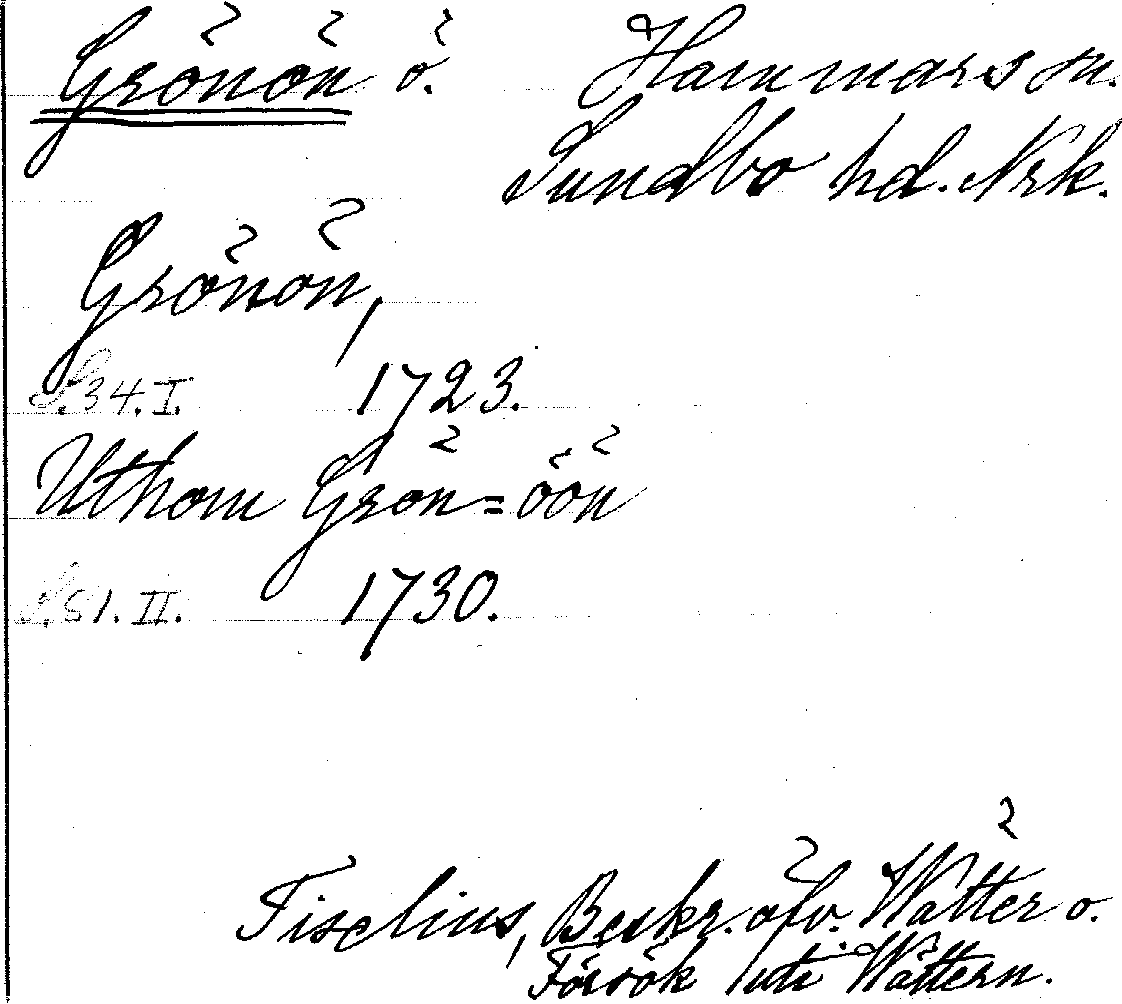 Grönön ö. Hammars sn.
Sundbo hd. Nrk.
Grönön,
S. 34. I. 1723.
Uthom Grön=öön
S. 51. II. 1730.
Tiselius, Beskr. öfv. Wätter o.
Försök uti Wättern.